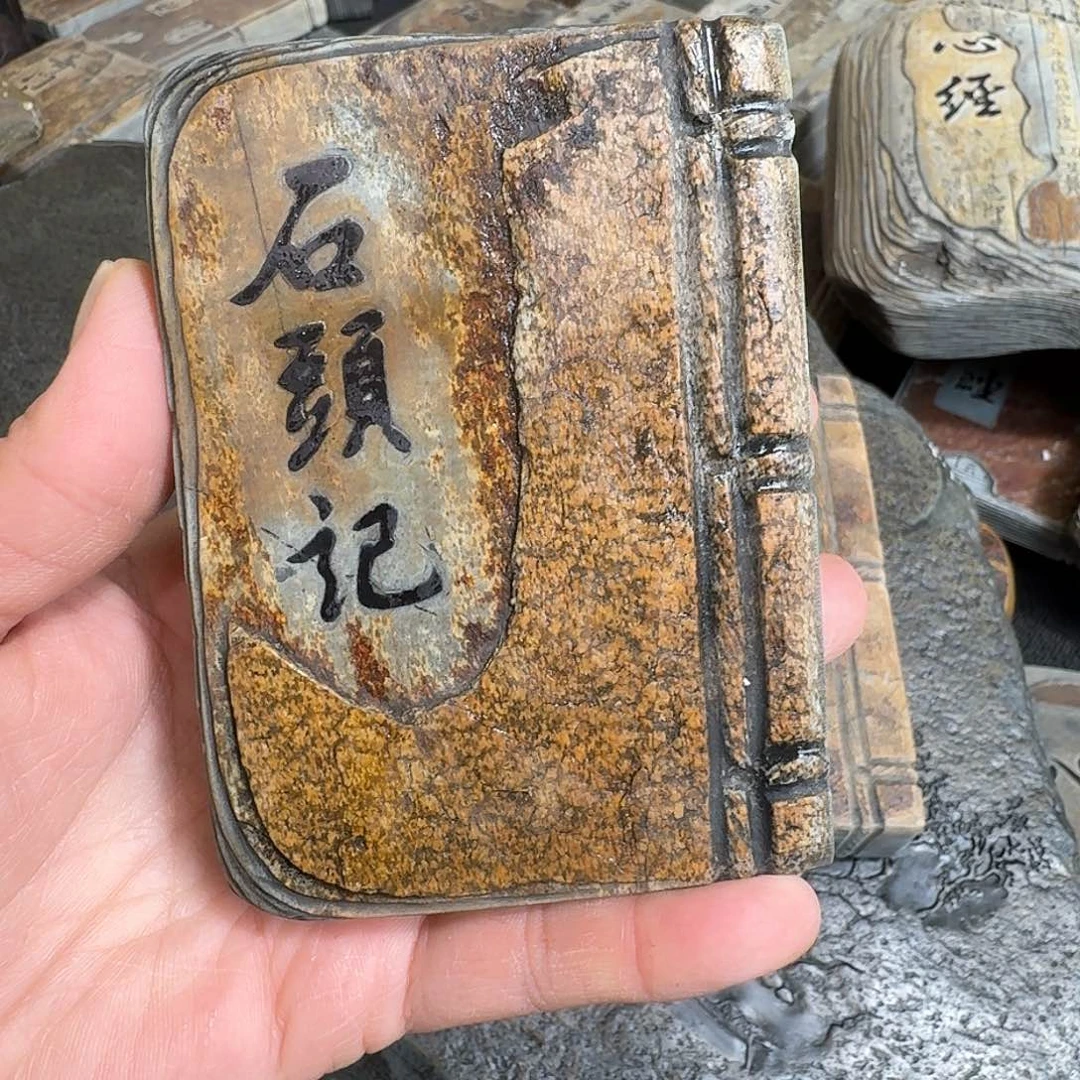 石頭記
心经